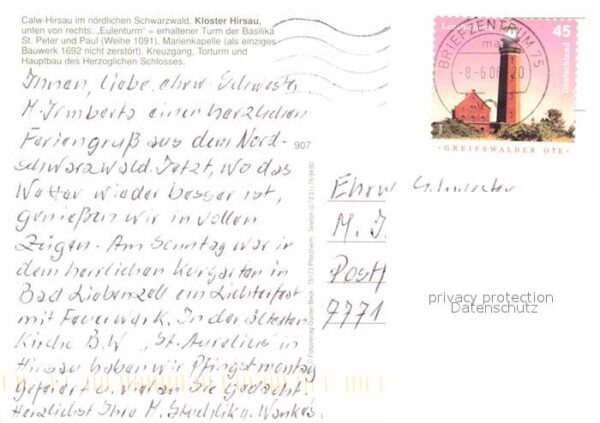 Calw-Hirsau im nördlichen Schwarzwald, Kloster Hirsau,
unten von rechts: „Eulenturm" = erhaltener Turm der Basilika
St. Peter und Paul (Weihe 1091), Marienkapelle (als einziges
Bauwerk 1692 nicht zerstört). Kreuzgang, Torturm und
Hauptbau des Herzoglichen Schlosses.
Ihnen, liebe, ehrw. Schwester
M. Irmberta einen herzlichen
Feriengruß aus dem Nord-
schwarzwald. Jetzt, wo das
Wetter wieder besser ist,
genießen wir in vollen
Zügen. Am Sonntag war in
dem herrlichen Kurgarten in
Bad Liebenzell ein Lichterfest
mit Feuerwerk. In der ältesten
Kirche B.W „St. Aurelius" in
Hirsau haben wir Pfingstmontag
gefeiert u. viel an Sie gedacht!
Herzlichst Ihre M.
907
© Fotoverlag Günter Beck · 75173 Pforzheim · Telefon
BRIEFZENTRUM 75
-8.-6.06.-20
45
Deutschland
GREIFSWALDER OIE
Ehrw. Schwester
M. I
Posth
7771
privacy protection
Datenschutz